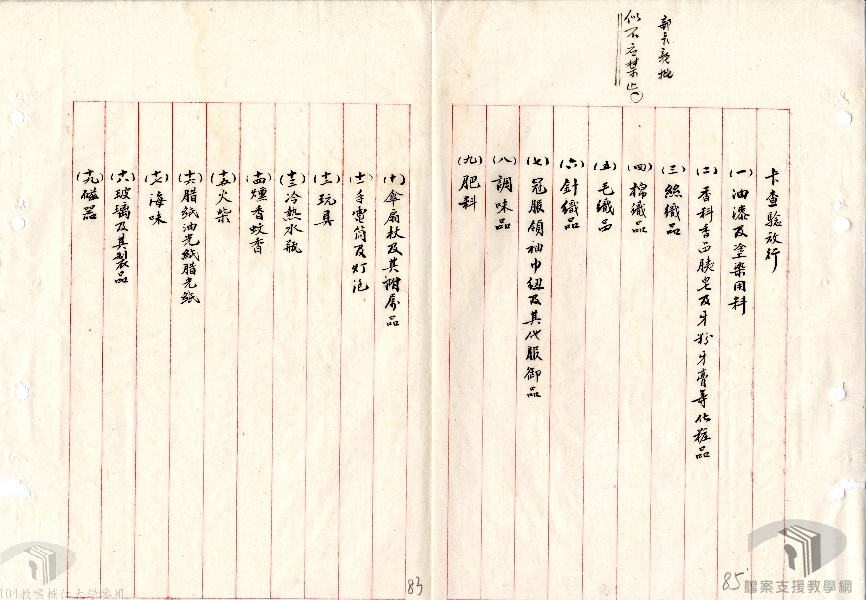 部長親批
似不應禁止
卡查驗放行
(一)油漆及塗染用料
(二)香料香品胰皂及牙粉牙膏等化粧品
(三)絲織品
(四)棉織品
(五)毛織品
(六)針織品
(七)冠服領袖巾紐及其他服御品
(八)調味品
(九)肥料
85
(十)傘扇杖及其附屬品
(十一)手電筒及灯泡
(十二)玩具
(十三)冷熱水瓶
(十四)燻香蚊香
(十五)火柴
(十六)腊紙油光紙腊光紙
(十七)海味
(十八)玻璃及其製品
(十九)磁器
83
檔案支援教學網